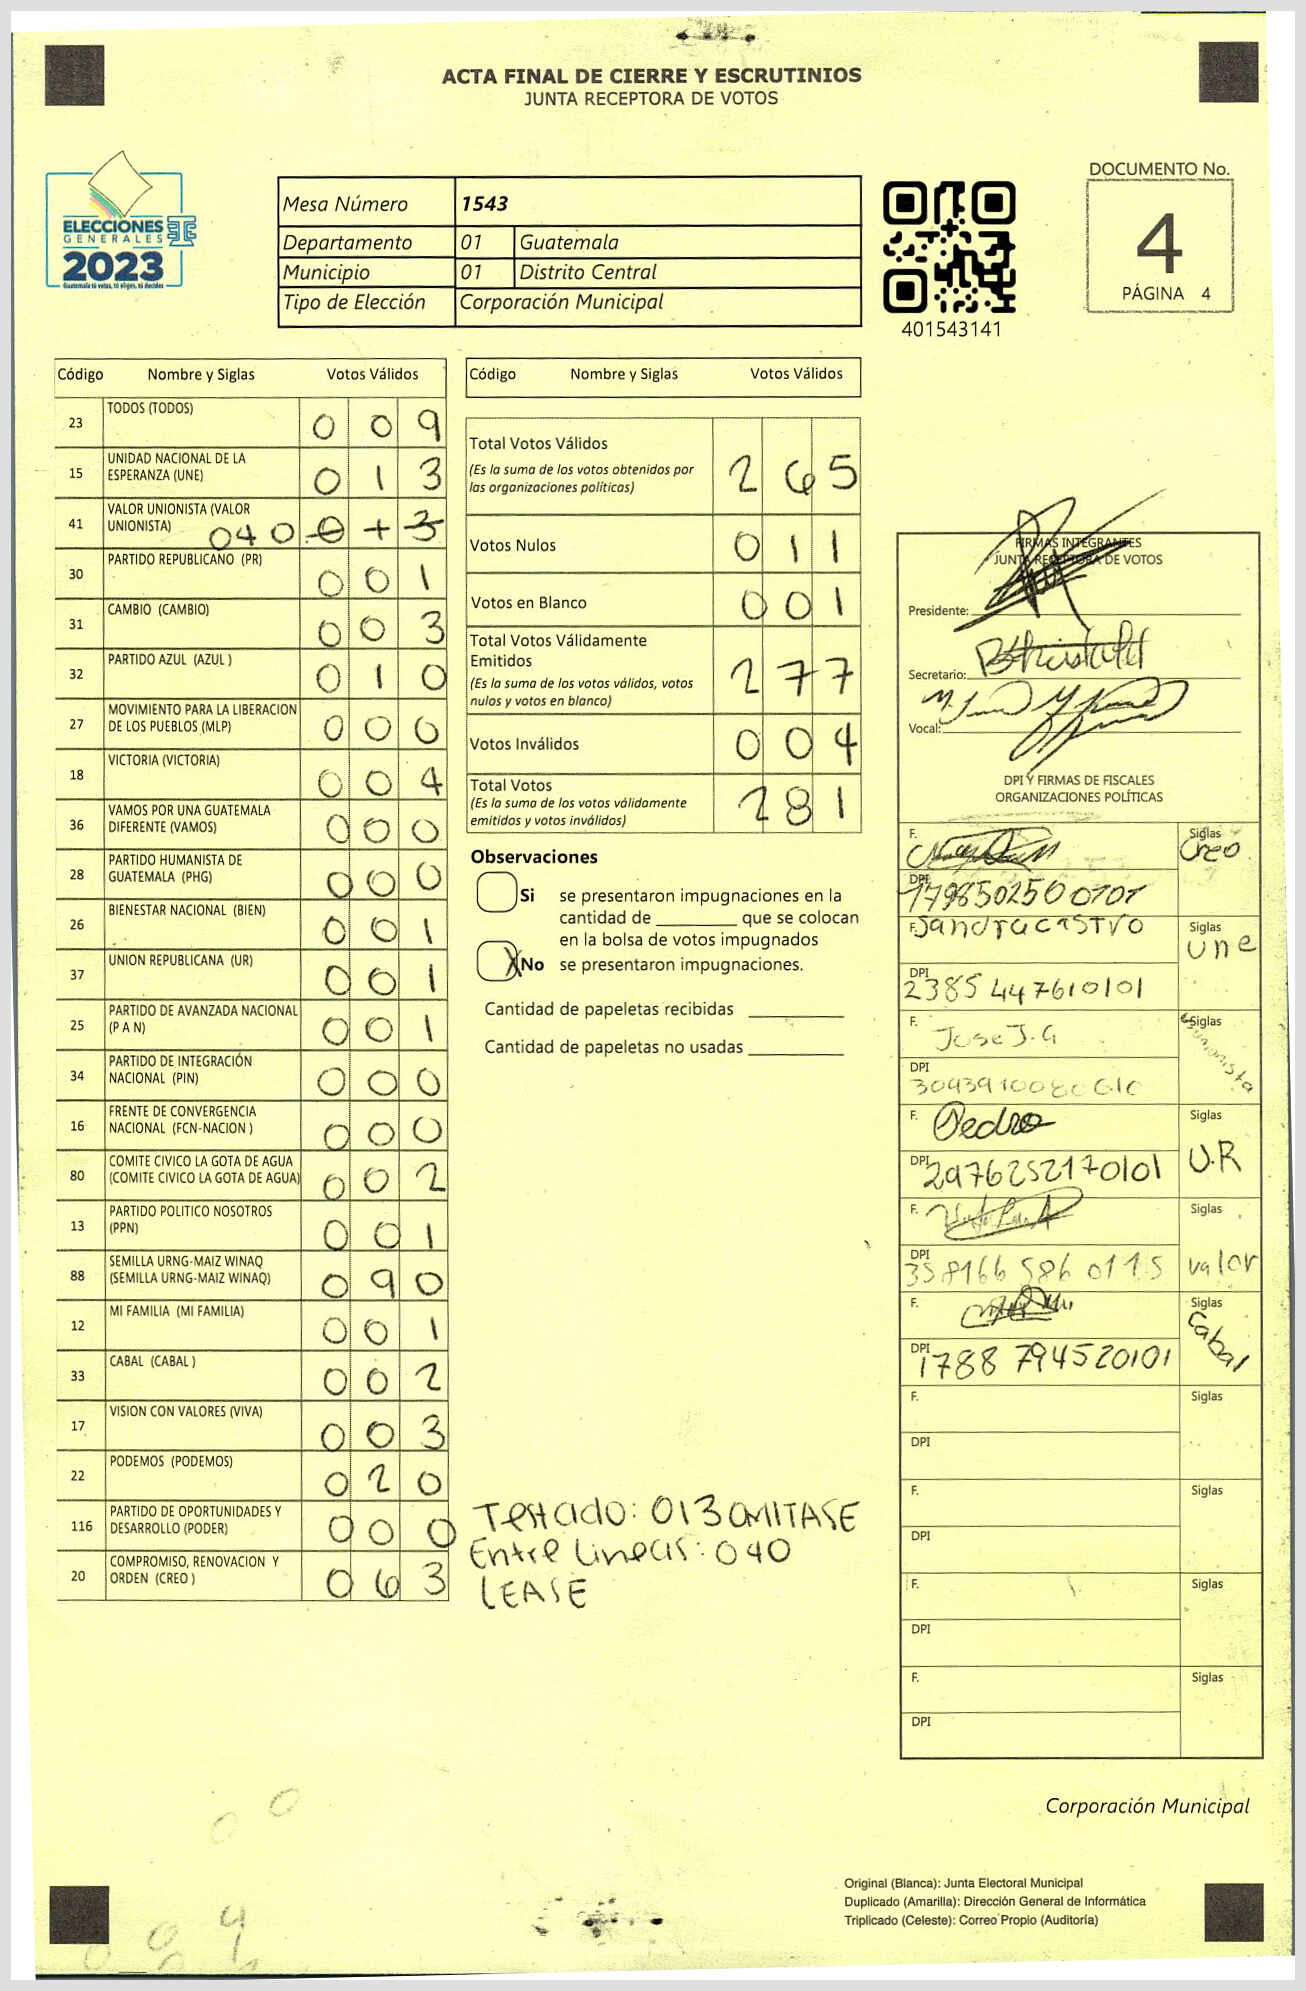 ACTA FINAL DE CIERRE Y ESCRUTINIOS
JUNTA RECEPTORA DE VOTOS
ELECCIONES
GENERALES
2023
Guatemala tú votas, tú eliges, tú decides
Mesa Número 1543
Departamento 01 Guatemala
Municipio 01 Distrito Central
Tipo de Elección Corporación Municipal
401543141
DOCUMENTO No.
4
PÁGINA 4
Código Nombre y Siglas Votos Válidos
23 TODOS (TODOS) 0 0 9
15 UNIDAD NACIONAL DE LA
ESPERANZA (UNE) 0 1 3
41 VALOR UNIONISTA (VALOR
UNIONISTA) 040 0 1 3
30 PARTIDO REPUBLICANO (PR) 0 0 1
31 CAMBIO (CAMBIO) 0 0 3
32 PARTIDO AZUL (AZUL ) 0 1 0
27 MOVIMIENTO PARA LA LIBERACION
DE LOS PUEBLOS (MLP) 0 0 0
18 VICTORIA (VICTORIA) 0 0 4
36 VAMOS POR UNA GUATEMALA
DIFERENTE (VAMOS) 0 0 0
28 PARTIDO HUMANISTA DE
GUATEMALA (PHG) 0 0 0
26 BIENESTAR NACIONAL (BIEN) 0 0 1
37 UNION REPUBLICANA (UR) 0 0 1
25 PARTIDO DE AVANZADA NACIONAL
(P A N) 0 0 1
34 PARTIDO DE INTEGRACIÓN
NACIONAL (PIN) 0 0 0
16 FRENTE DE CONVERGENCIA
NACIONAL (FCN-NACION ) 0 0 0
80 COMITE CIVICO LA GOTA DE AGUA
(COMITE CIVICO LA GOTA DE AGUA) 0 0 2
13 PARTIDO POLITICO NOSOTROS
(PPN) 0 0 1
88 SEMILLA URNG-MAIZ WINAQ
(SEMILLA URNG-MAIZ WINAQ) 0 9 0
12 MI FAMILIA (MI FAMILIA) 0 0 1
33 CABAL (CABAL ) 0 0 2
17 VISION CON VALORES (VIVA) 0 0 3
22 PODEMOS (PODEMOS) 0 2 0
116 PARTIDO DE OPORTUNIDADES Y
DESARROLLO (PODER) 0 0 0
20 COMPROMISO, RENOVACION Y
ORDEN (CREO ) 0 6 3
Código Nombre y Siglas Votos Válidos
Total Votos Válidos 2 6 5
(Es la suma de los votos obtenidos por
las organizaciones políticas)
Votos Nulos 0 1 1
Votos en Blanco 0 0 1
Total Votos Válidamente
Emitidos 2 7 7
(Es la suma de los votos válidos, votos
nulos y votos en blanco)
Votos Inválidos 0 0 4
Total Votos 2 8 1
(Es la suma de los votos válidamente
emitidos y votos inválidos)
Observaciones
Si se presentaron impugnaciones en la
cantidad de ________ que se colocan
en la bolsa de votos impugnados
X No se presentaron impugnaciones.
Cantidad de papeletas recibidas
Cantidad de papeletas no usadas
Testado: 013 OMITASE
Entre Lineas: 040
LEASE
FIRMAS INTEGRANTES
JUNTA RECEPTORA DE VOTOS
Presidente:
Secretario:
Vocal:
DPI Y FIRMAS DE FISCALES
ORGANIZACIONES POLÍTICAS
F. Siglas
Creo
DPI
F. Sandra castro Siglas
une
DPI
2385 447610101
F. Jose J. G Siglas
DPI
F. Pedro Siglas
U.R
DPI 2976252170101
F. Siglas
valor
DPI
358166 586 0115
F. Siglas
Cabal
DPI 1788 794520101
F. Siglas
DPI
F. Siglas
DPI
F. Siglas
DPI
F. Siglas
DPI
Corporación Municipal
Original (Blanca): Junta Electoral Municipal
Duplicado (Amarilla): Dirección General de Informática
Triplicado (Celeste): Correo Propio (Auditoría)